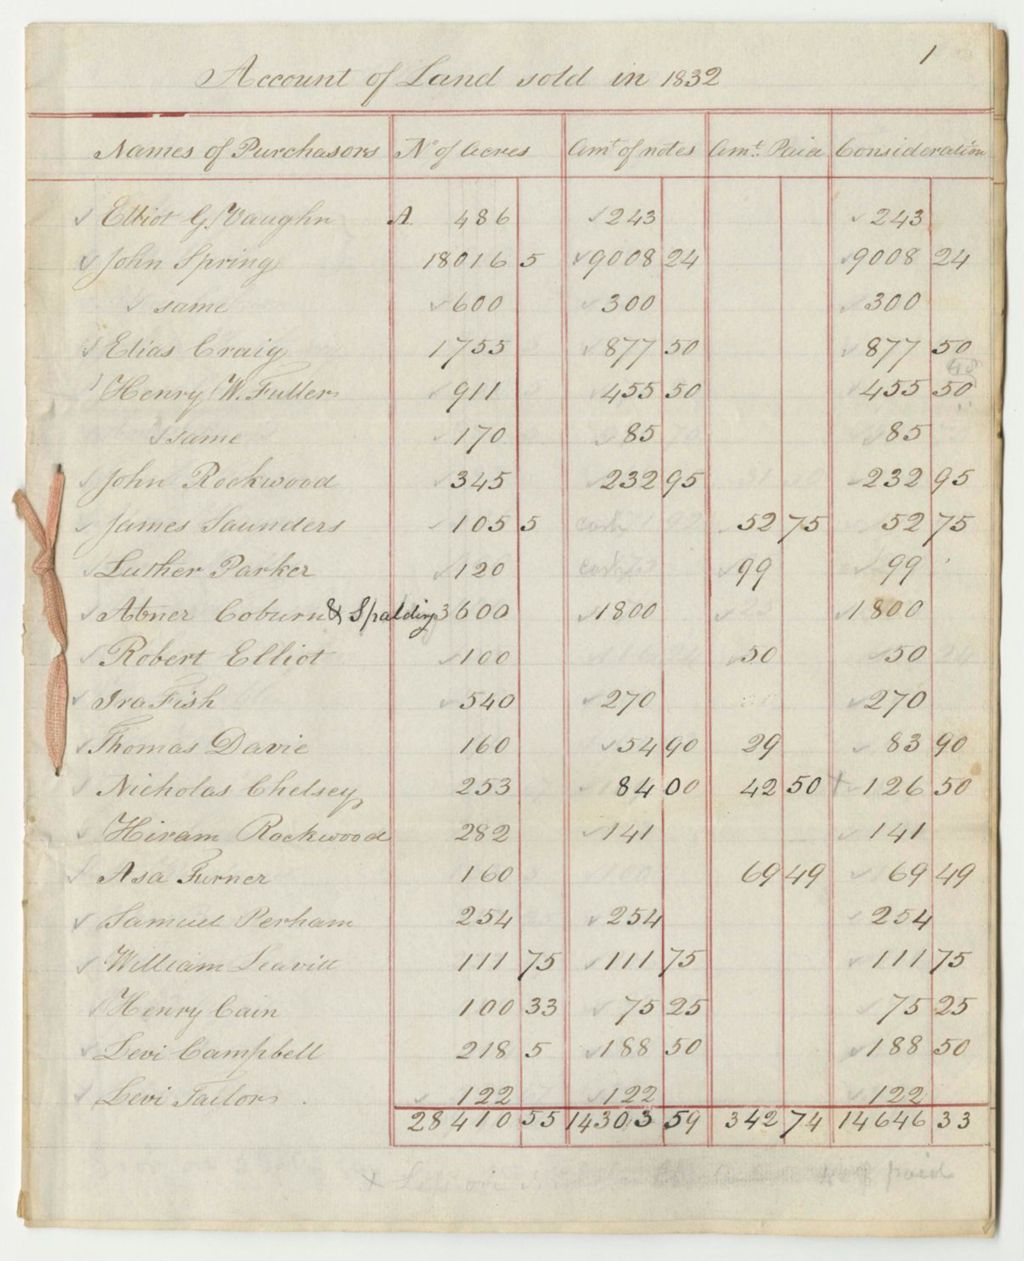 1
Account of Land sold in 1832
Names of Purchasors No of acres Amt of notes Amt. Paid Consideration
Elliot G. Vaughn A. 486 243 243
John Spring 18016 5 9008 24 9008 24
same 600 300 300
Elias Craig 1755 877 50 877 50
Henry W. Fuller 911 455 50 455 50
same 170 85 85
John Rockwood 345 232 95 232 95
James Saunders 105 5 cash 52 75 52 75
Luther Parker 120 cash 99 99
Abner Coburn & Spalding 3600 1800 1800
Robert Elliot 100 50 50
Ira Fish 540 270 270
Thomas Davie 160 54 90 29 83 90
Nicholas Chelsey 253 84 00 42 50 126 50
Hiram Rockwood 282 141 141
Asa Turner 160 69 49 69 49
Samuel Perham 254 254 254
William Leavitt 111 75 111 75 111 75
Henry Cain 100 33 75 25 75 25
Levi Campbell 218 5 188 50 188 50
Levi Tailor 122 122 122
28410 55 14303 59 342 74 14646 33
paid